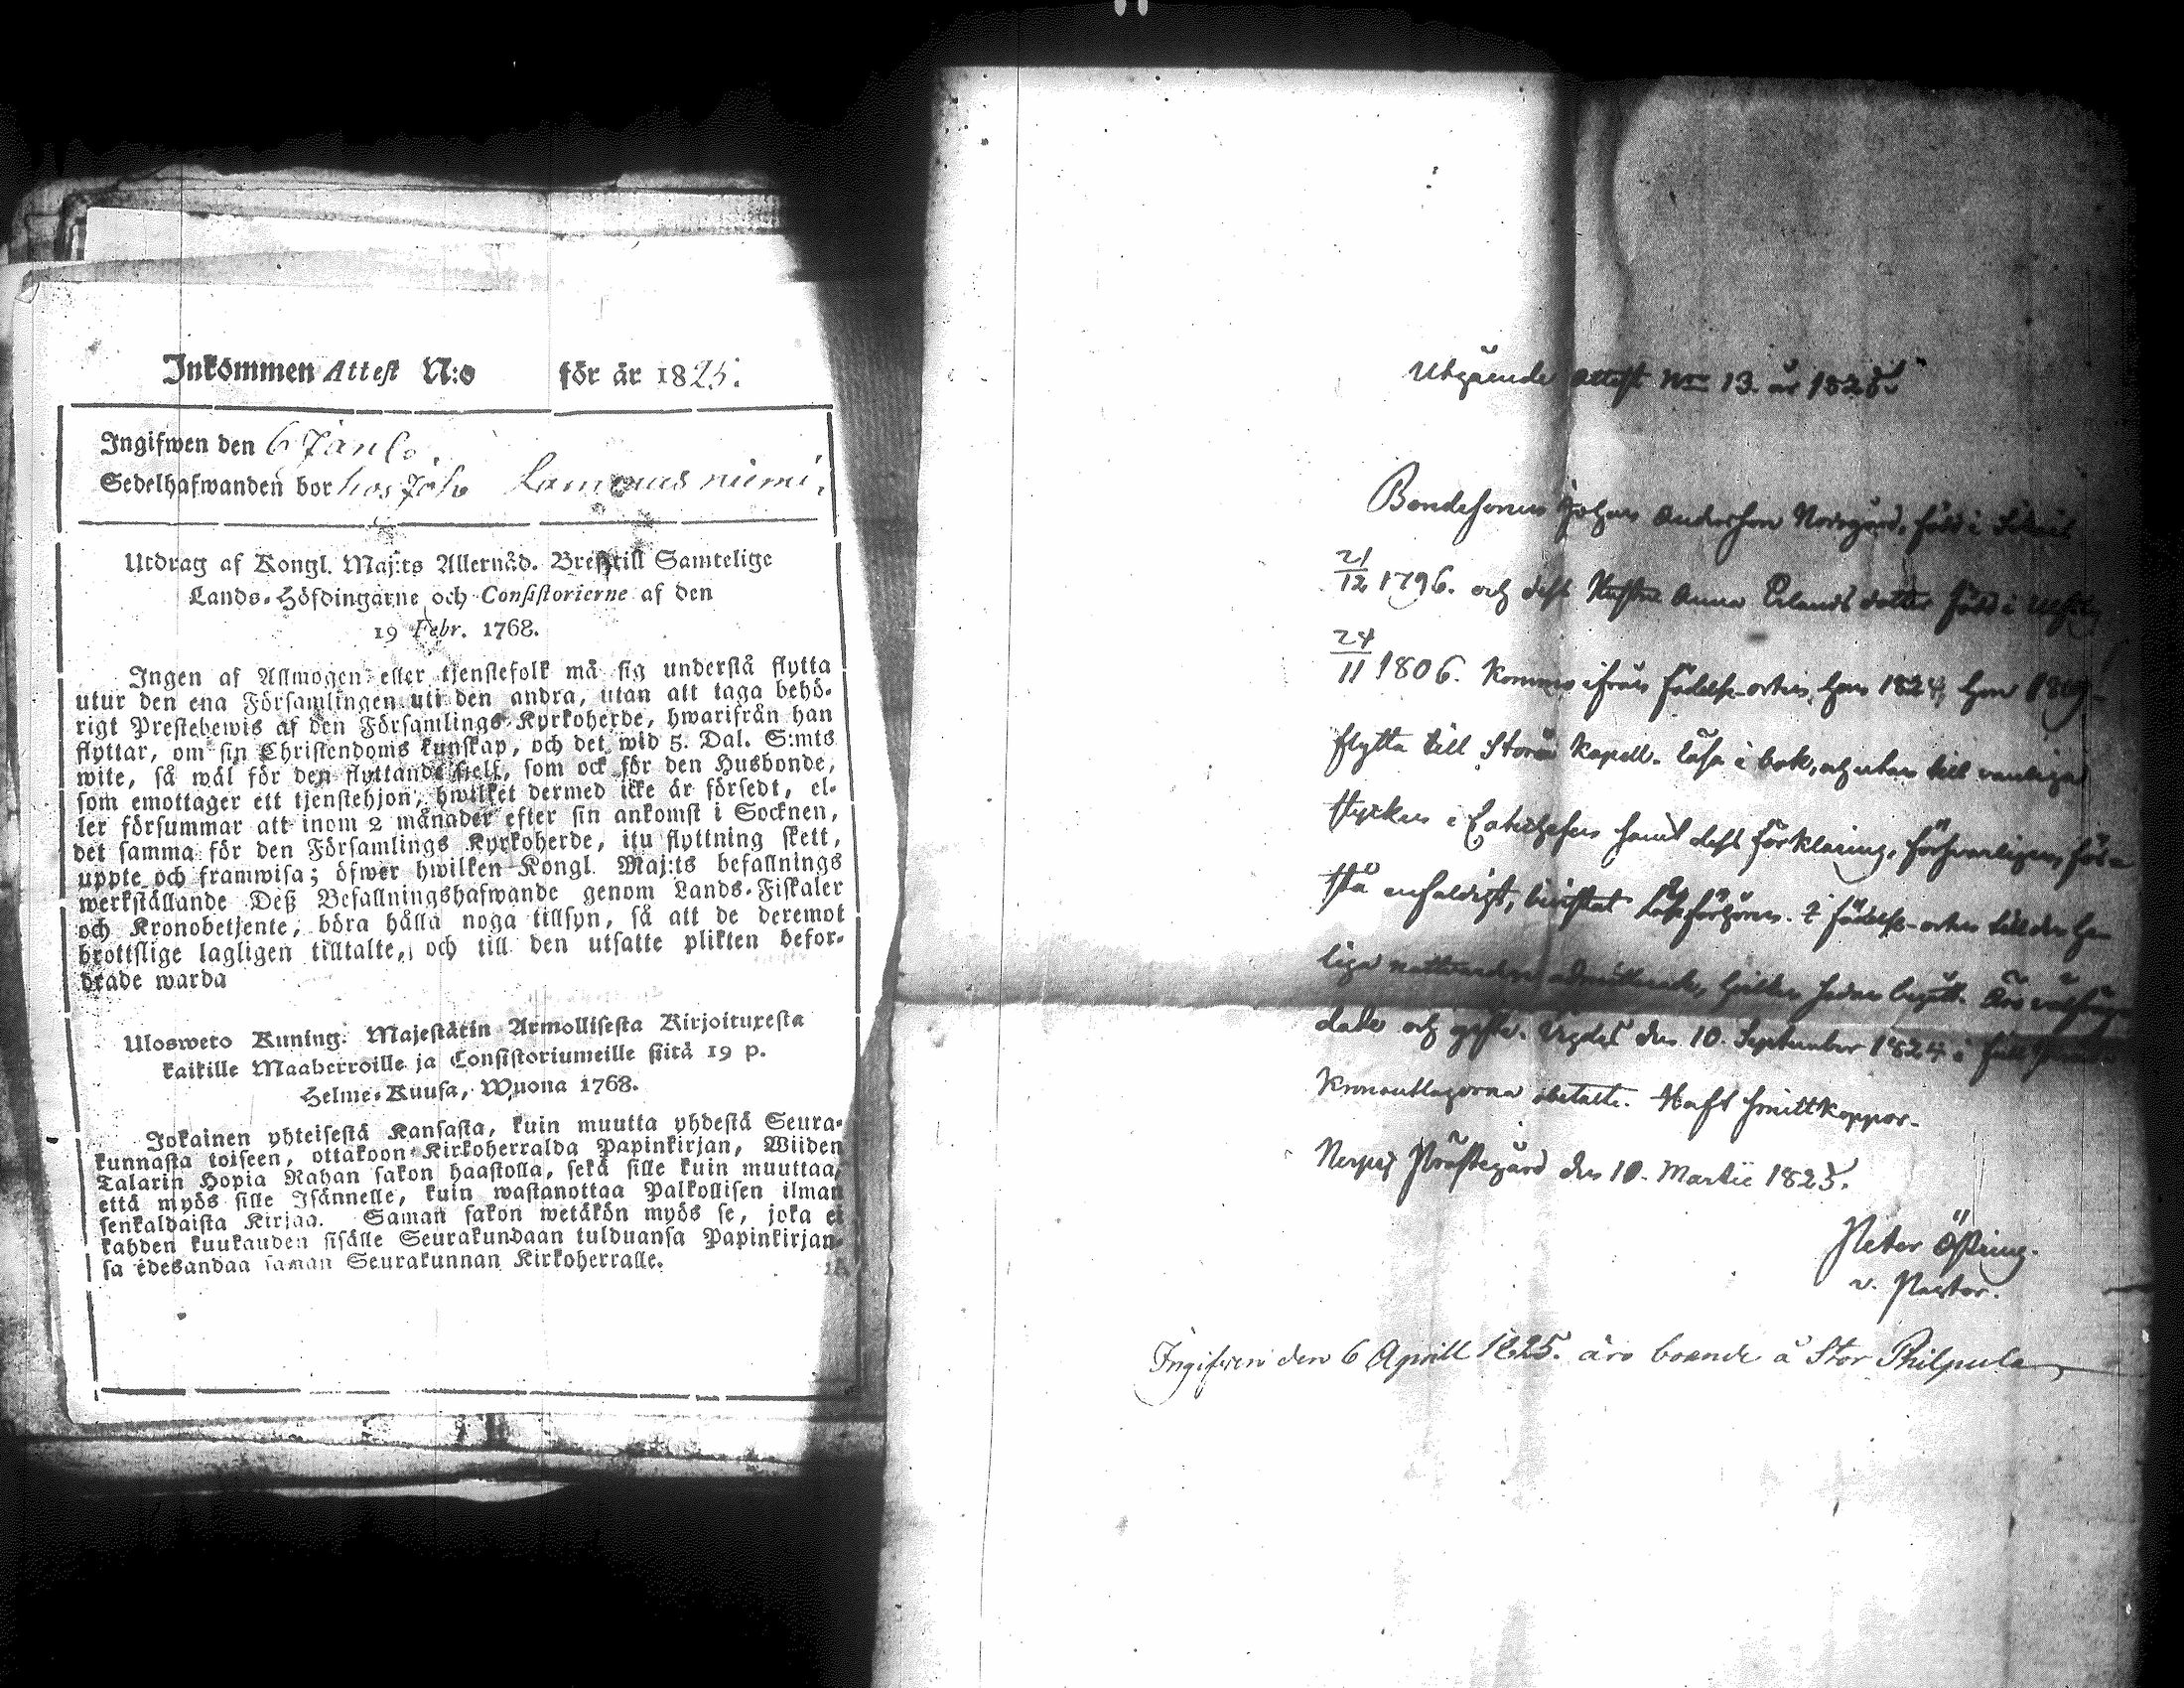 Inkommen Attest N:o för år 1825.
Ingifwen den 6
Sedelhafwanden bor hos Joh
Utdrag af Kongl. Maj:ts Allernåd. Bref till Samtelige
Lands-Höfdingarne och Consistorierne af den
19 Febr. 1768.
Ingen af Allmogen eller tjenstefolk må sig understå flytta
utur den ena Församlingen uti den andra, utan att taga behö-
rigt Prestebewis af den Församlings Kyrkoherde, hwarifrån han
flyttar, om sin Christendoms kunskap, och det wid 5. Dal. S:mts
wite, så wäl för den flyttande sielf, som ock för den Husbonde,
som emottager ett tjenstehjon, hwilket dermed icke är försedt, el-
ler försummar att inom 2 månader efter sin ankomst i Socknen,
det samma för den Församlings Kyrkoherde, itu flyttning skett,
uppte och framwisa; öfwer hwilken Kongl. Maj:ts befallnings
werkställande Deß Befallningshafwande genom Lands-Fiskaler
och Kronobetjente, böra hålla noga tillsyn, så att de deremot
brottslige lagligen tilltalte, och till den utsatte plikten befor-
drade warda
Ulosweto Kuning. Majestätin Armollisesta Kirjoituxesta
kaikille Maaherroille ja Consistoriumeille siitä 19 p.
Helme-Kuusa, Wuona 1768.
Jokainen yhteisestä Kansasta, kuin muutta yhdestä Seura-
kunnasta toiseen, ottakoon Kirkoherralda Papinkirjan, Wiiden
Talarin Hopia Rahan sakon haastolla, sekä sille kuin muuttaa,
että myös sille Isännelle, kuin wastanottaa Palkollisen ilman
senkaldaista Kirjaa. Saman sakon wetäkön myös se, joka ei
kahden kuukauden sisälle Seurakundaan tulduansa Papinkirjan-
sa edesandaa saman Seurakunnan Kirkoherralle.
Utgående attest N:ro 13. år 1825.
Bondesonen Johan Andersson Norrgård, född i
21/12 1796. och dess Hustru Anna Erlandsdotter född i
24/11 1806. Komne ifrån födelse-orten, han 1824, hon
flytta till Storå Kapell. Läsa i bok, och utan till vanliga
stycken i Catechesen samt dess förklaring, försvarligen, för-
stå enfaldigt, bevistat Läsförhören. I födelse-orten till den he-
liga nattvarden admitterade, hvilken sedan begått. Äro välfräg-
dade och gifte. den 10. September 1824 i
Kronoutlagorna obetalte. Haft smittkoppor.
Nerpes Prästegård den 10. Martii 1825.
Peter Östring.
v. Pastor.
Ingifwen den 6 Aprill 1825. äro boende å Stor Philpula